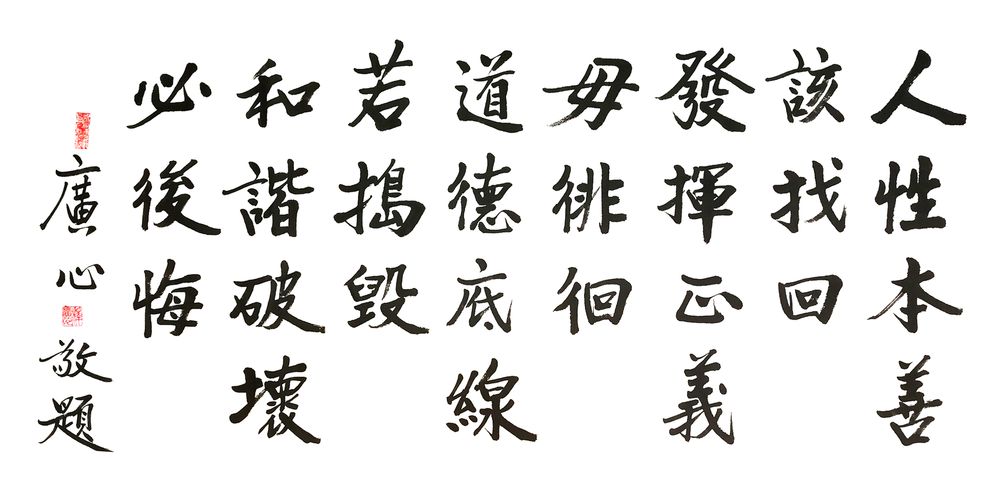 人性本善
該找回
發揮正義
毋徘徊
道德底線
若搗毀
和諧破壞
必後悔
廣心敬題